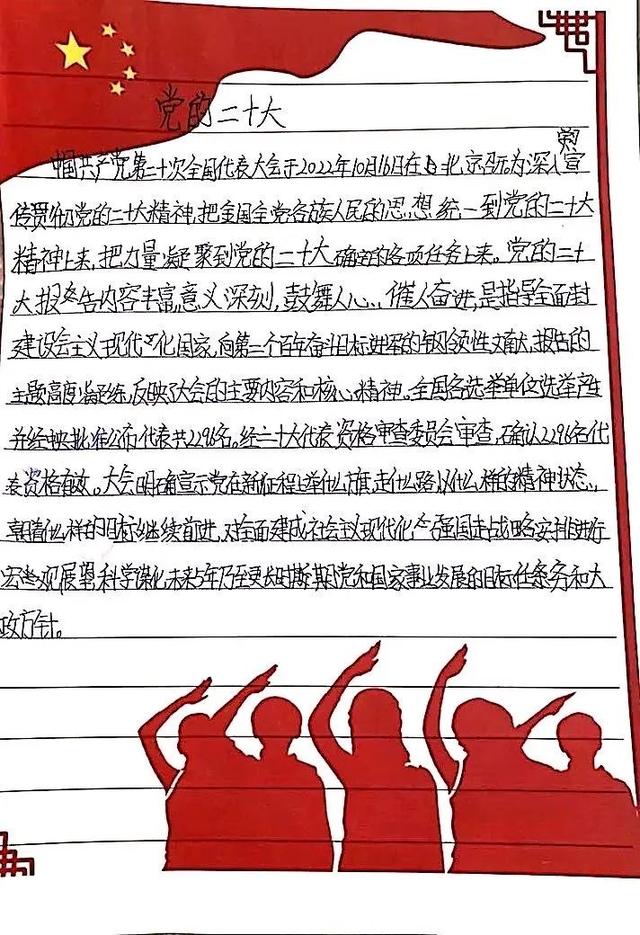 党的二十大
中国共产党第二十次全国代表大会于2022年10月16日在北京召开为深入学习宣
传贯彻党的二十大精神,把全国全党各族人民的思想统一到党的二十大
精神上来,把力量凝聚到党的二十大确定的各项任务上来。党的二十
大报告内容丰富,意义深刻,鼓舞人心,催人奋进,是指导全面
建设社会主义现代化国家,向第二个百年奋斗目标进军的纲领性文献,报告的
主题高度凝练,反映了大会的主要内容和核心精神。全国各选举单位选举产生
并经批准公布代表共2296名。经二十大代表资格审查委员会审查,确认2296名代
表资格有效。大会明确宣示党在新征程上举什么旗走什么路以什么样的精神状态、
朝着什么样的目标继续前进,对全面建成社会主义现代化强国战略安排进行
宏观展望,科学谋化未来5年乃至更长时期党和国家事业发展的目标任务和大
政方针。